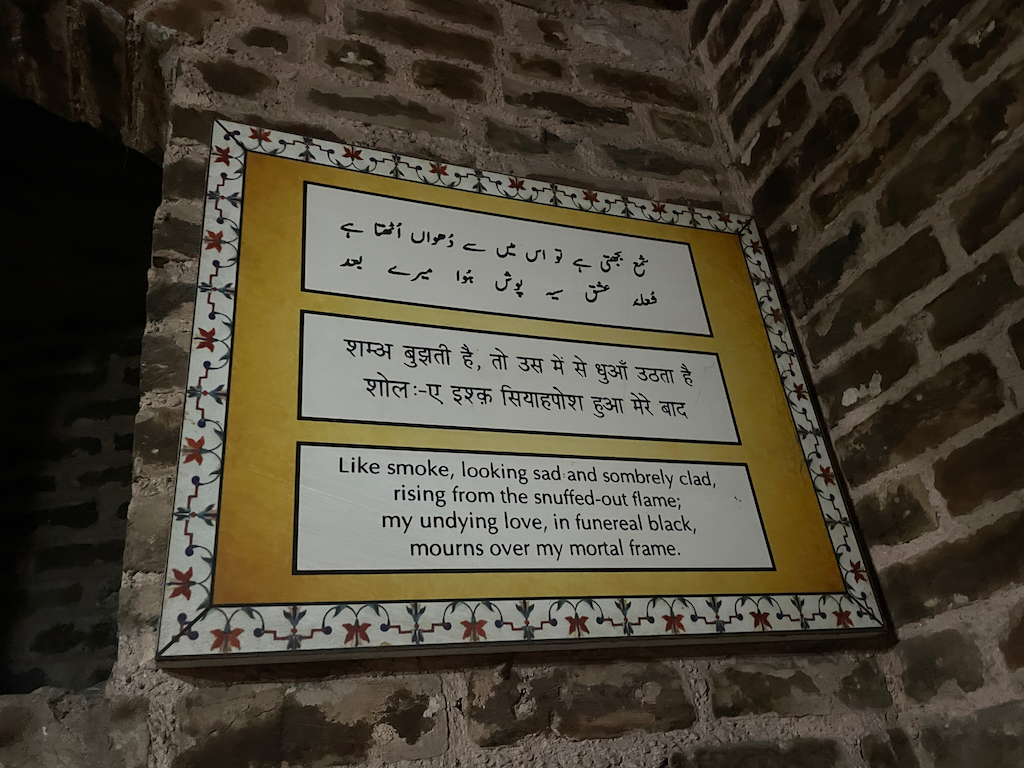 شمع بجھتی ہے تو اس میں سے دُھواں اُٹھتا ہے
شعلۂ عشق سیہ پوش ہُوا میرے بعد
शमअ बुझती है, तो उस में से धुआँ उठता है
शोलः-ए इश्क़ सियाहपोश हुआ मेरे बाद
Like smoke, looking sad and sombrely clad,
rising from the snuffed-out flame;
my undying love, in funereal black,
mourns over my mortal frame.